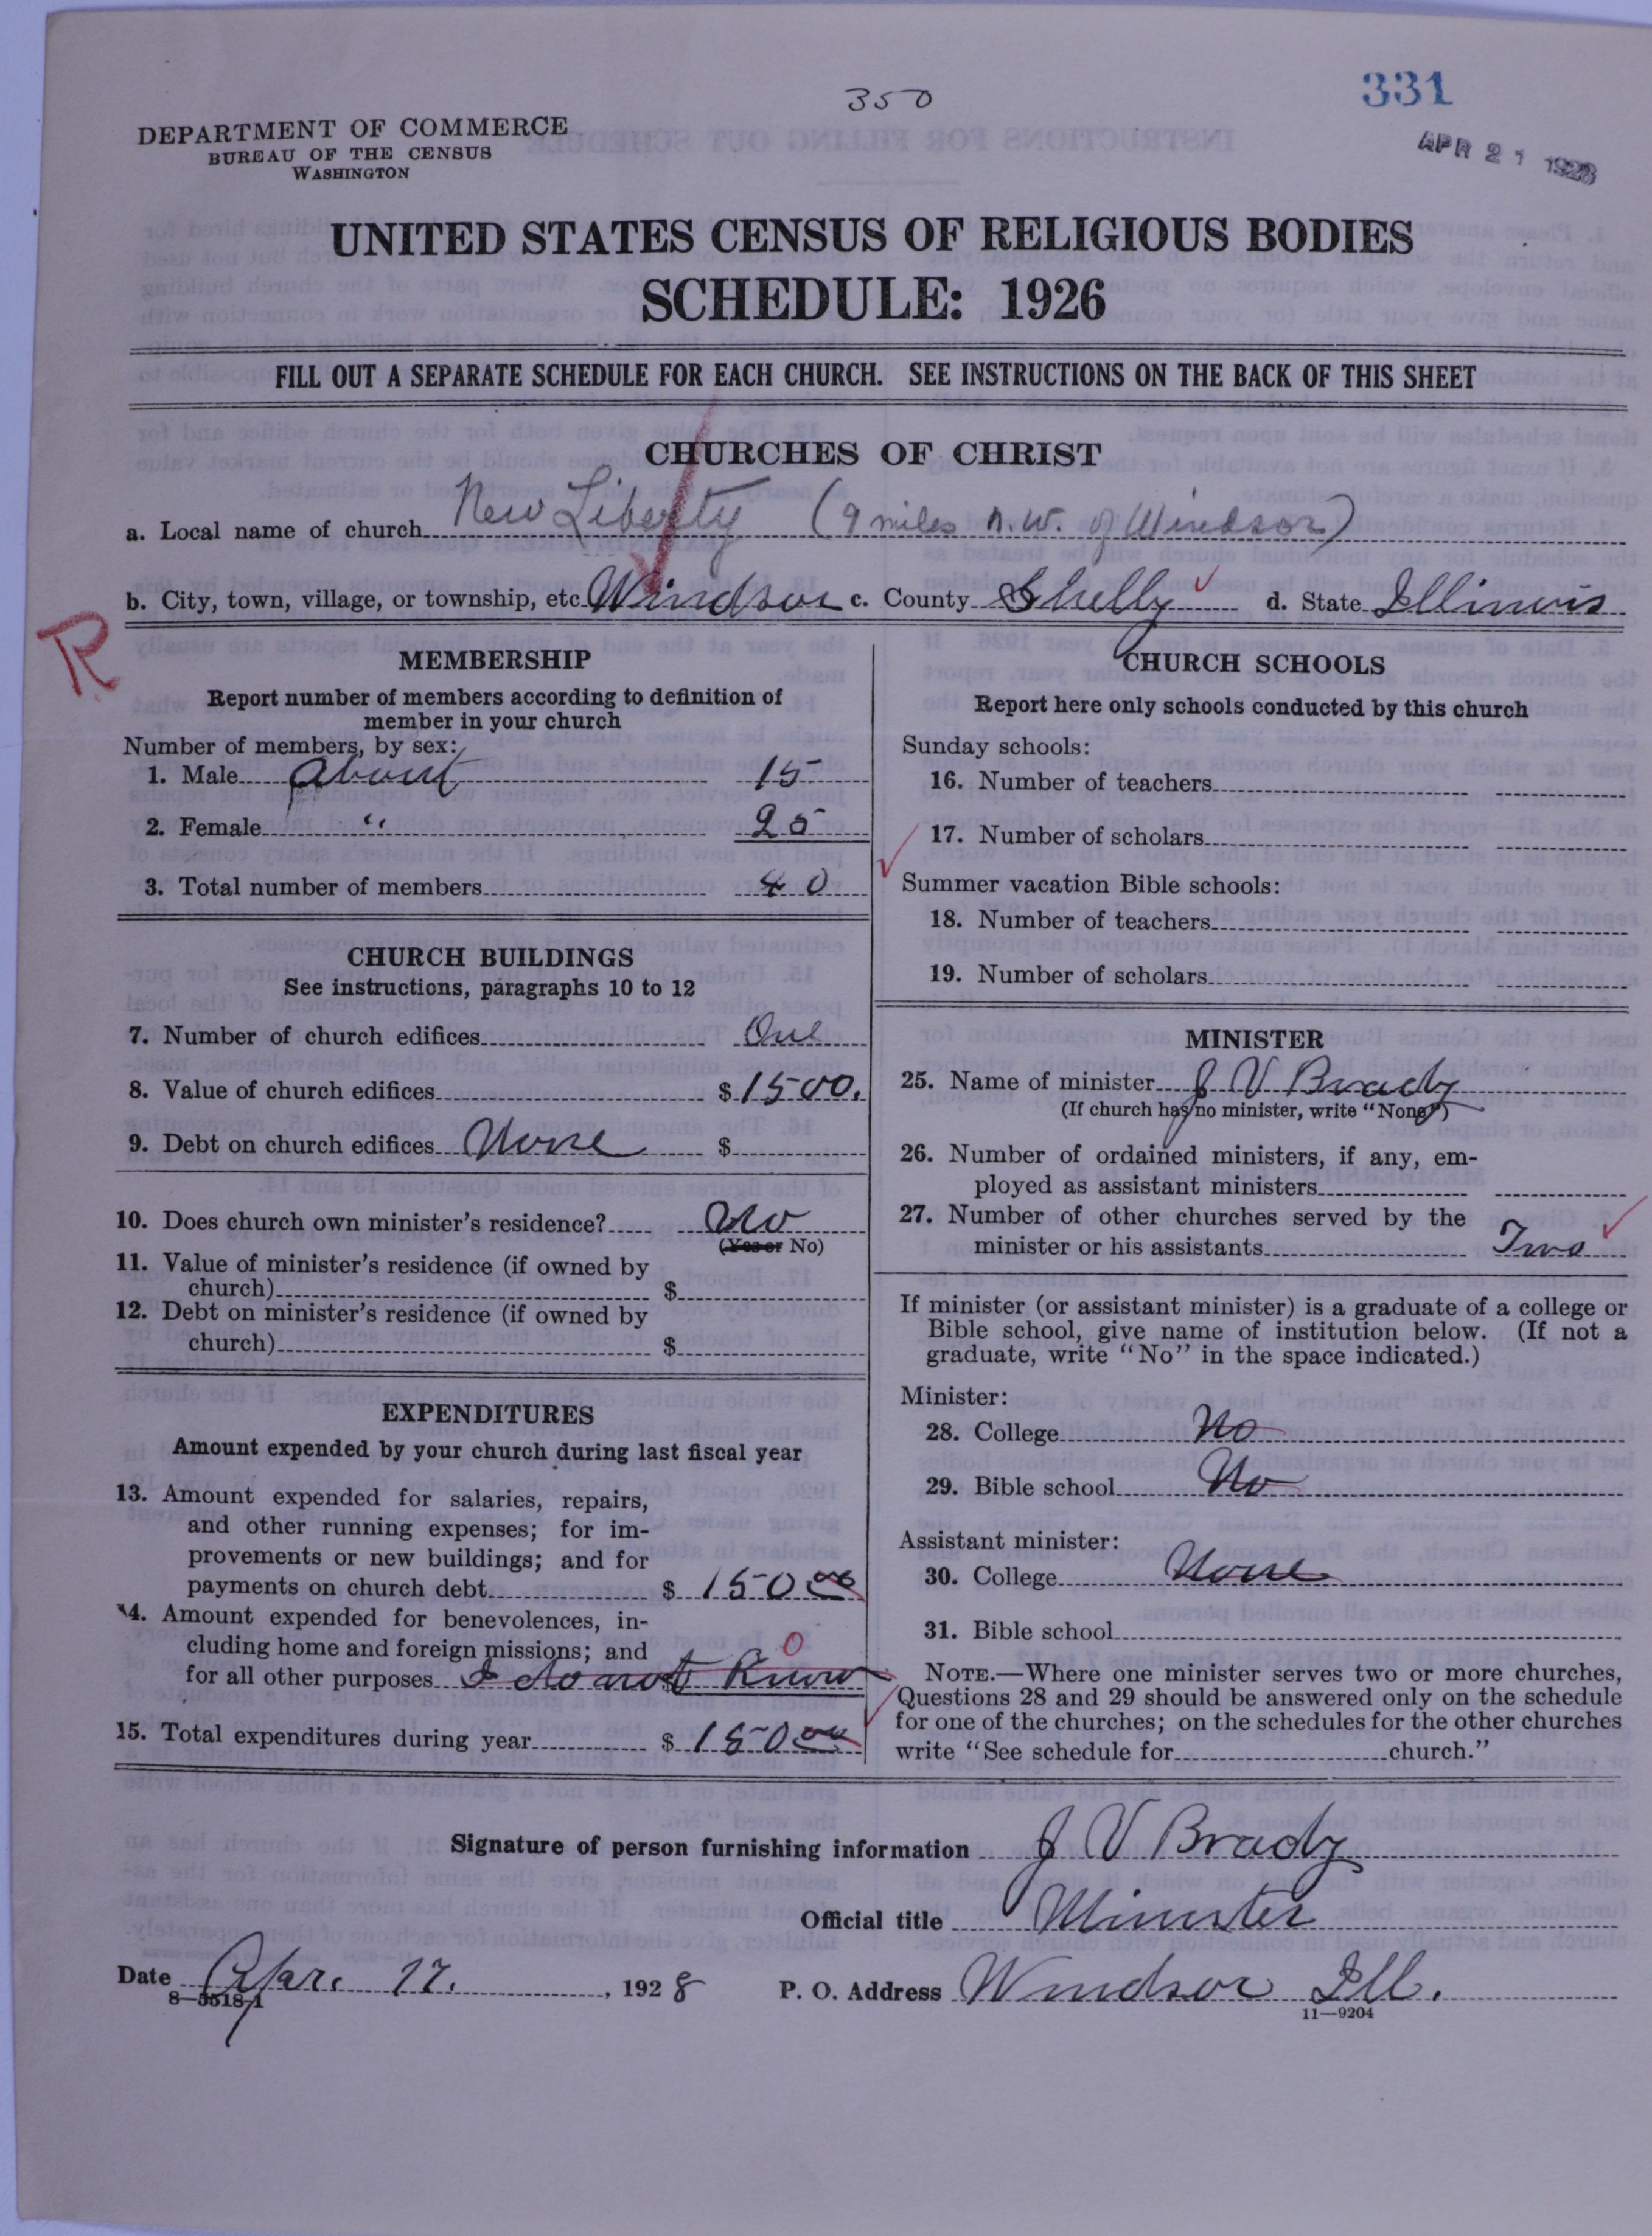 350
331
DEPARTMENT OF COMMERCE
BUREAU OF THE CENSUS
WASHINGTON
APR 21 1928
UNITED STATES CENSUS OF RELIGIOUS BODIES
SCHEDULE: 1926
FILL OUT A SEPARATE SCHEDULE FOR EACH CHURCH. SEE INSTRUCTIONS ON THE BACK OF THIS SHEET
CHURCHES OF CHRIST
a. Local name of church New Liberty (9 miles n.w. of Windsor)
b. City, town, village, or township, etc Windsor c. County Shelby d. State Illinois
R
MEMBERSHIP
Report number of members according to definition of
member in your church
Number of members, by sex:
1. Male about 15
2. Female " 25
3. Total number of members 40
CHURCH BUILDINGS
See instructions, paragraphs 10 to 12
7. Number of church edifices One
8. Value of church edifices $ 1500.
9. Debt on church edifices None $
10. Does church own minister's residence? No
(Yes or No)
11. Value of minister's residence (if owned by
church) $
12. Debt on minister's residence (if owned by
church) $
EXPENDITURES
Amount expended by your church during last fiscal year
13. Amount expended for salaries, repairs,
and other running expenses; for im-
provements or new buildings; and for
payments on church debt $ 150 00
14. Amount expended for benevolences, in-
cluding home and foreign missions; and 0
for all other purposes I do not $ Know
15. Total expenditures during year $ 150 00
CHURCH SCHOOLS
Report here only schools conducted by this church
Sunday schools:
16. Number of teachers
17. Number of scholars
Summer vacation Bible schools:
18. Number of teachers
19. Number of scholars
MINISTER
25. Name of minister J V Brady
(If church has no minister, write "None")
26. Number of ordained ministers, if any, em-
ployed as assistant ministers
27. Number of other churches served by the
minister or his assistants Two
If minister (or assistant minister) is a graduate of a college or
Bible school, give name of institution below. (If not a
graduate, write "No" in the space indicated.)
Minister:
28. College No
29. Bible school No
Assistant minister:
30. College None
31. Bible school
NOTE.—Where one minister serves two or more churches,
Questions 28 and 29 should be answered only on the schedule
for one of the churches; on the schedules for the other churches
write "See schedule for church."
Signature of person furnishing information J V Brady
Official title Minister
Date Apr. 17. , 1928 P. O. Address Windsor Ill.
8—5518-1
11—9204